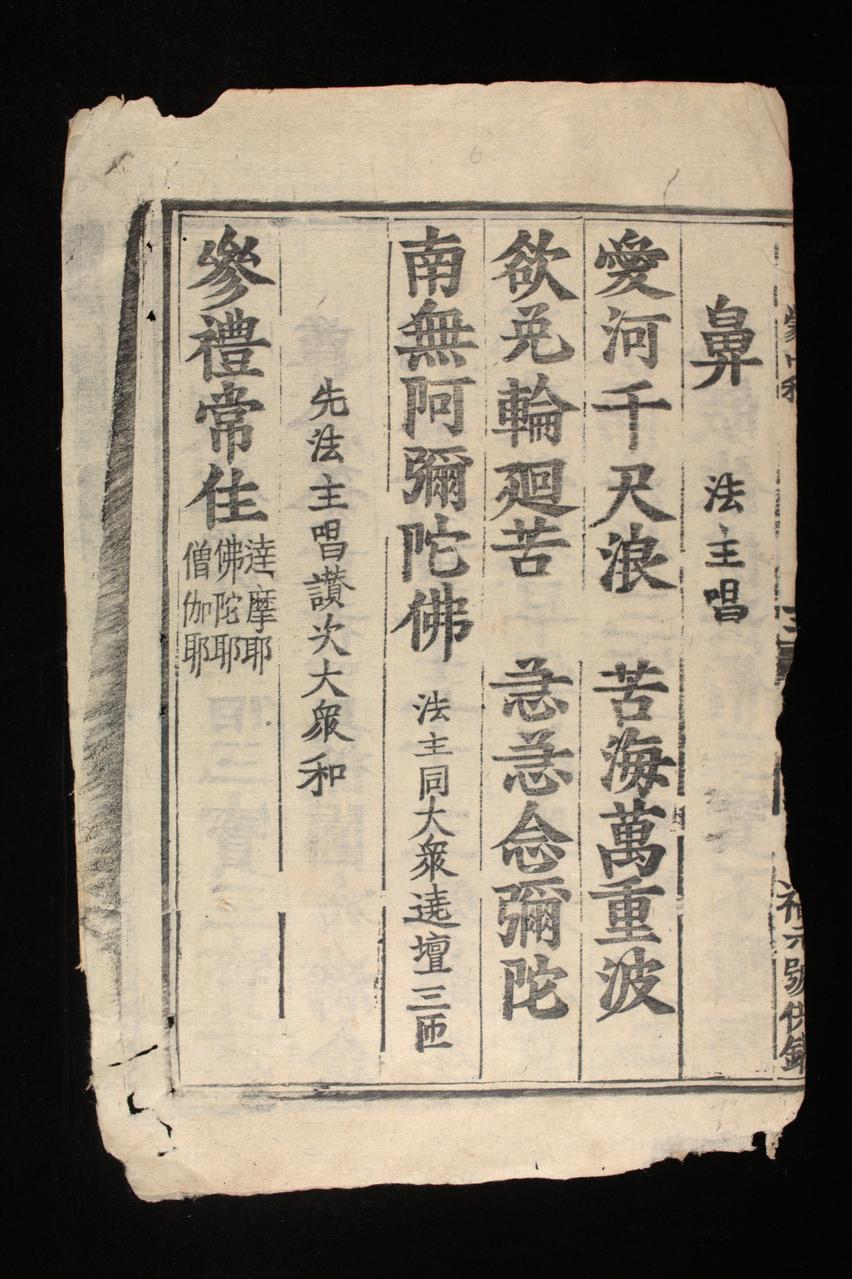 鼻 法主唱
愛河千尺浪 苦海萬重波
欲免輪廻苦 急急念彌陀
南無阿彌陀佛 法主同大衆遶壇三匝
先法主唱讃次大衆和
參禮常住 達摩耶 佛陀耶 僧伽耶
福元號供